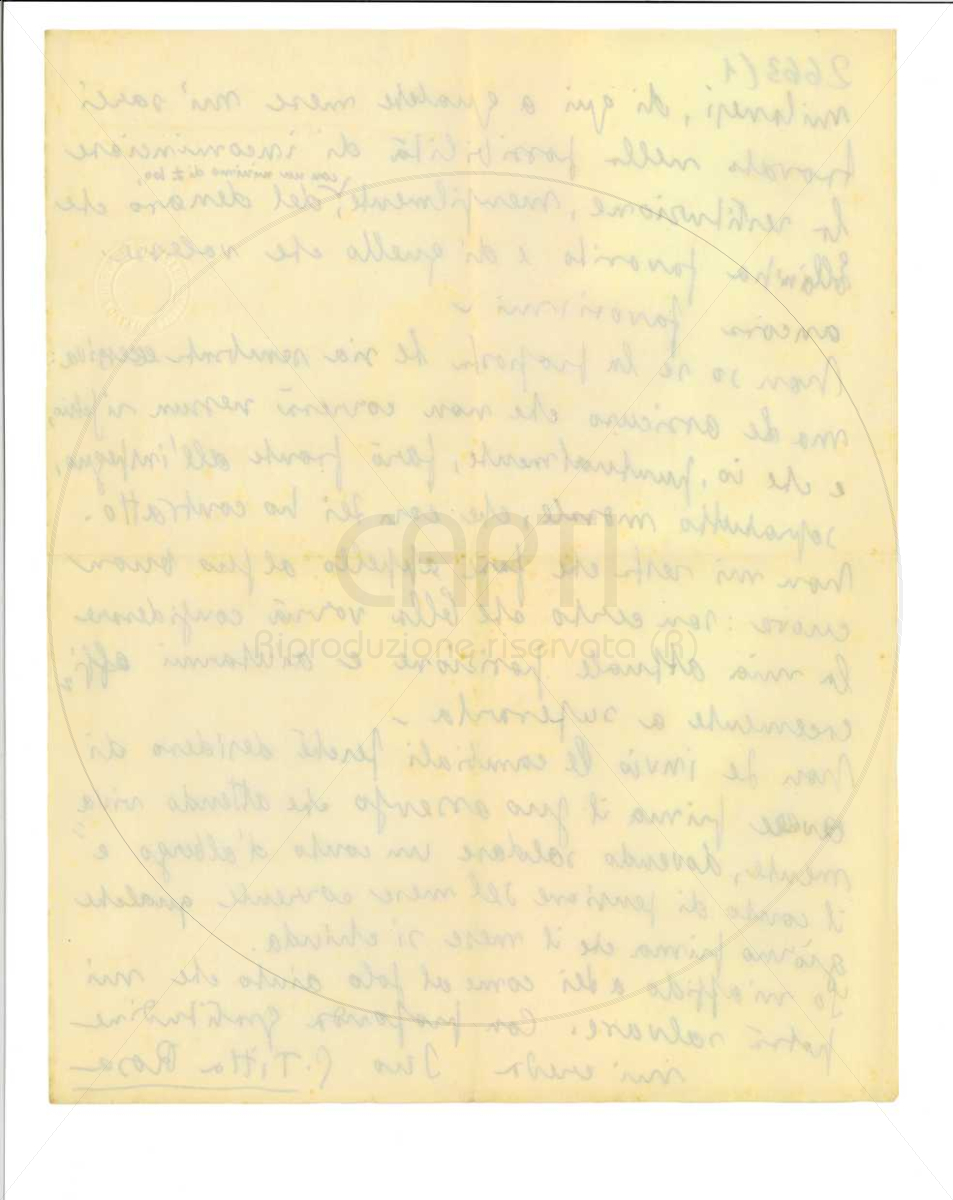 2663/1
milanesi, di qui a qualche mese mi sarei
trovato nella possibilità di incominciare
con un minimo di £ 100,
la restituzione, mensilmente, del denaro che
Ella m'ha favorito e di quello che volesse
ancora favorirmi -
Non so se la proposta Le sia sembrata eccessiva:
ma Le assicuro che non correrà nessun rischio,
e che io, puntualmente, farò fronte all'impegno,
soprattutto morale, che con Lei ho contratto.
Non mi resta che fare appello al suo buon
cuore: son certo che Ella vorrà considerare
la mia attuale posizione e aiutarmi effi=
cacemente a superarla -
Non Le invio le cambiali perché desidero di
avere prima il suo assenso che attendo viva
mente, dovendo saldare un conto d'albergo e
il conto di pensione del mese corrente qualche
giorno prima che il mese si chiuda.
Io m'affido a Lei come al solo aiuto che mi
potrà salvare. Con profonda gratitudine
mi creda Suo G. Titta Rosa
CAPTI
Riproduzione riservata (R)